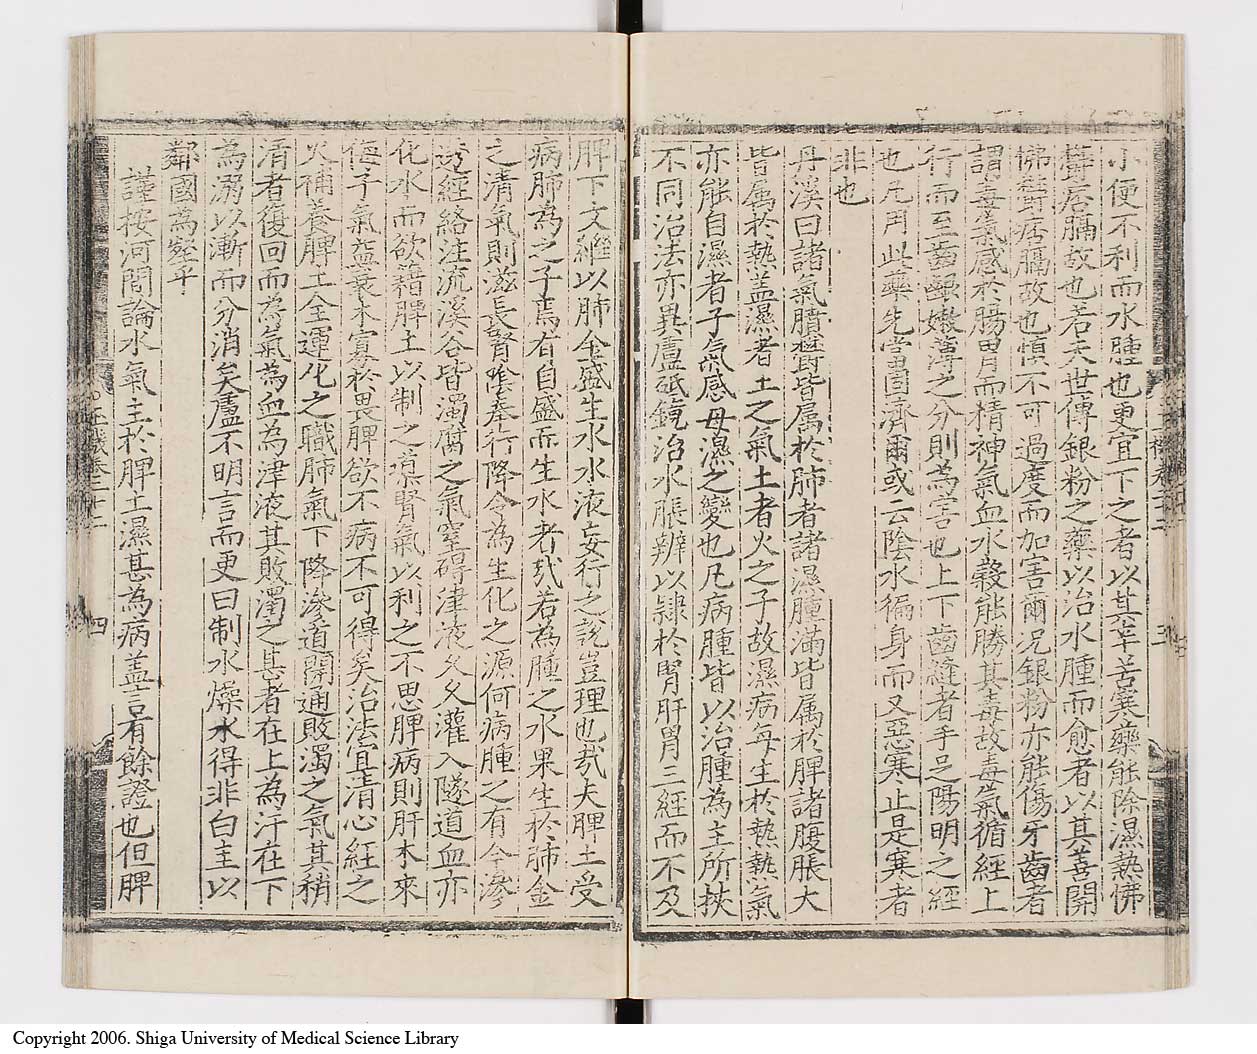 小便不利而水腫也更宜下之者以其辛苦寒藥能除濕熱怫
欝痞膈故也若夫世傳銀粉之藥以治水腫而愈者以其善開
怫欝痞膈故也慎不可過度而加害爾况銀粉亦能傷牙齒者
謂毒氣感於腸胃而精神氣血水穀能勝其毒故毒氣循經上
行而至齒齦嫩薄之分則為害也上下齒縫者手足陽明之經
也凡用此藥先當固濟爾或云陰水徧身而又惡寒止是寒者
非也
丹溪曰諸氣膹欝皆属於肺者諸濕腫滿皆属於脾諸腹脹大
皆属於熱盖濕者土之氣土者火之子故濕病每生於熱熱氣
亦能自濕者子氣感母濕之變也凡病腫皆以治腫為主所挾
不同治法亦異盧砥鏡治水脹辨以隷於腎肝胃三經而不及
脾下文繼以肺金盛生水水液妄行之說豈理也哉夫脾土受
病肺為之子焉有自盛而生水者哉若為腫之水果生於肺金
之清氣則滋長腎陰奉行降令為生化之源何病腫之有今滲
透經絡注流溪谷皆濁腐之氣窒碍津液久久灌入隧道血亦
化水而欲籍脾土以制之導腎氣以利之不思脾病則肝木來
侮子氣益衰木寡於畏脾欲不病不可得矣治法宜清心経之
火補養脾土全運化之職肺氣下降滲道開通敗濁之氣其稍
清者復回而為氣為血為津液其敗濁之甚者在上為汗在下
為溺以漸而分消矣盧不明言而更曰制水燥水得非白主以
鄰國為壑乎
謹按河間論水氣主於脾土濕甚為病盖言有餘證也但脾
玉機卷之二十二
四